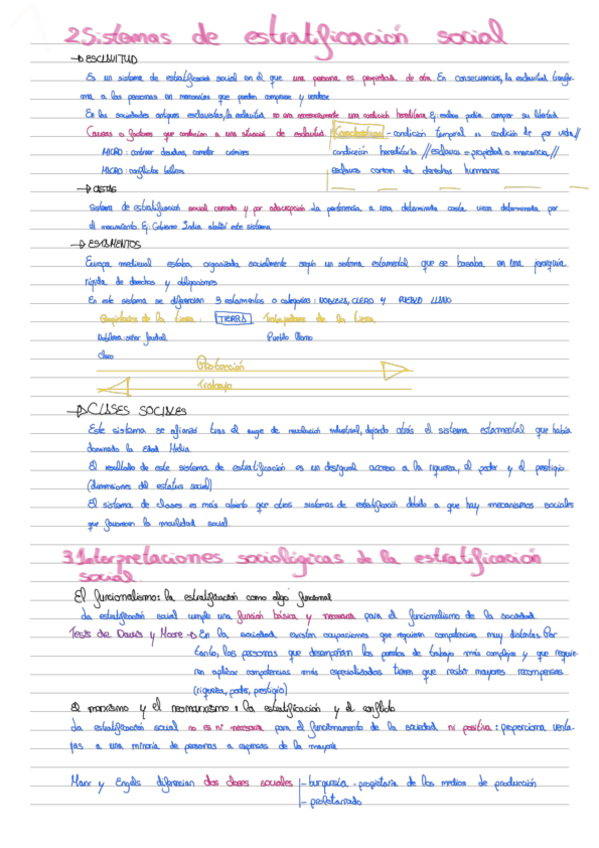 2 Sistemas de estratificación social
→ ESCLAVITUD
Es un sistema de estratificación social en el que una persona es propiedad de otra. En consecuencia, la esclavitud transfor-
ma a las personas en mercancías que pueden comprarse y venderse
En las sociedades antiguas esclavistas, la esclavitud no era necesariamente una condición hereditaria. Ej: esclavo podía comprar su libertad
Causas o factores que conducían a una situación de esclavitud
Características - condición temporal vs condición de por vida //
MICRO: contraer deudas, cometer crímenes
condición hereditaria // esclavos = propiedad o mercancía //
MICRO: conflictos bélicos
esclavos carecen de derechos humanos
→ CASTAS
Sistema de estratificación social cerrado y por adscripción. La pertenencia a una determinada casta viene determinada por
el nacimiento. Ej: Gobierno India abolió este sistema
→ ESTAMENTOS
Europa medieval estaba organizada socialmente según un sistema estamental que se basaba en una jerarquía
rígida de derechos y obligaciones
En este sistema se diferencian 3 estamentos o categorías: NOBLEZA, CLERO Y PUEBLO LLANO
Propietarios de la tierra: TIERRA Trabajadores de la tierra
Nobleza: señor feudal Pueblo llano
Clero
Protección
Trabajo
→ CLASES SOCIALES
Este sistema se afianza tras el auge de revolución industrial, dejando atrás el sistema estamental que había
dominado la Edad Media
El resultado de este sistema de estratificación es un desigual acceso a la riqueza, al poder y el prestigio
(dimensiones del estatus social)
El sistema de clases es más abierto que otros sistemas de estratificación debido a que hay mecanismos sociales
que favorecen la movilidad social
3. Interpretaciones sociológicas de la estratificación
social
El funcionalismo: la estratificación como algo funcional
La estratificación social cumple una función básica y necesaria para el funcionalismo de la sociedad
Tesis de Davis y Moore → En la sociedad existen ocupaciones que requieren competencias muy distintas. Por
tanto, las personas que desempeñan los puestos de trabajo más complejos y que requie-
ren aplicar competencias más especializadas tienen que recibir mayores recompensas
(riqueza, poder, prestigio)
El marxismo y el neomarxismo: la estratificación y el conflicto
La estratificación social no es ni necesaria para el funcionamiento de la sociedad ni positiva: proporciona venta-
jas a una minoría de personas a expensas de la mayoría
Marx y Engels diferencian dos clases sociales - burguesía - propietaria de los medios de producción
- proletariado